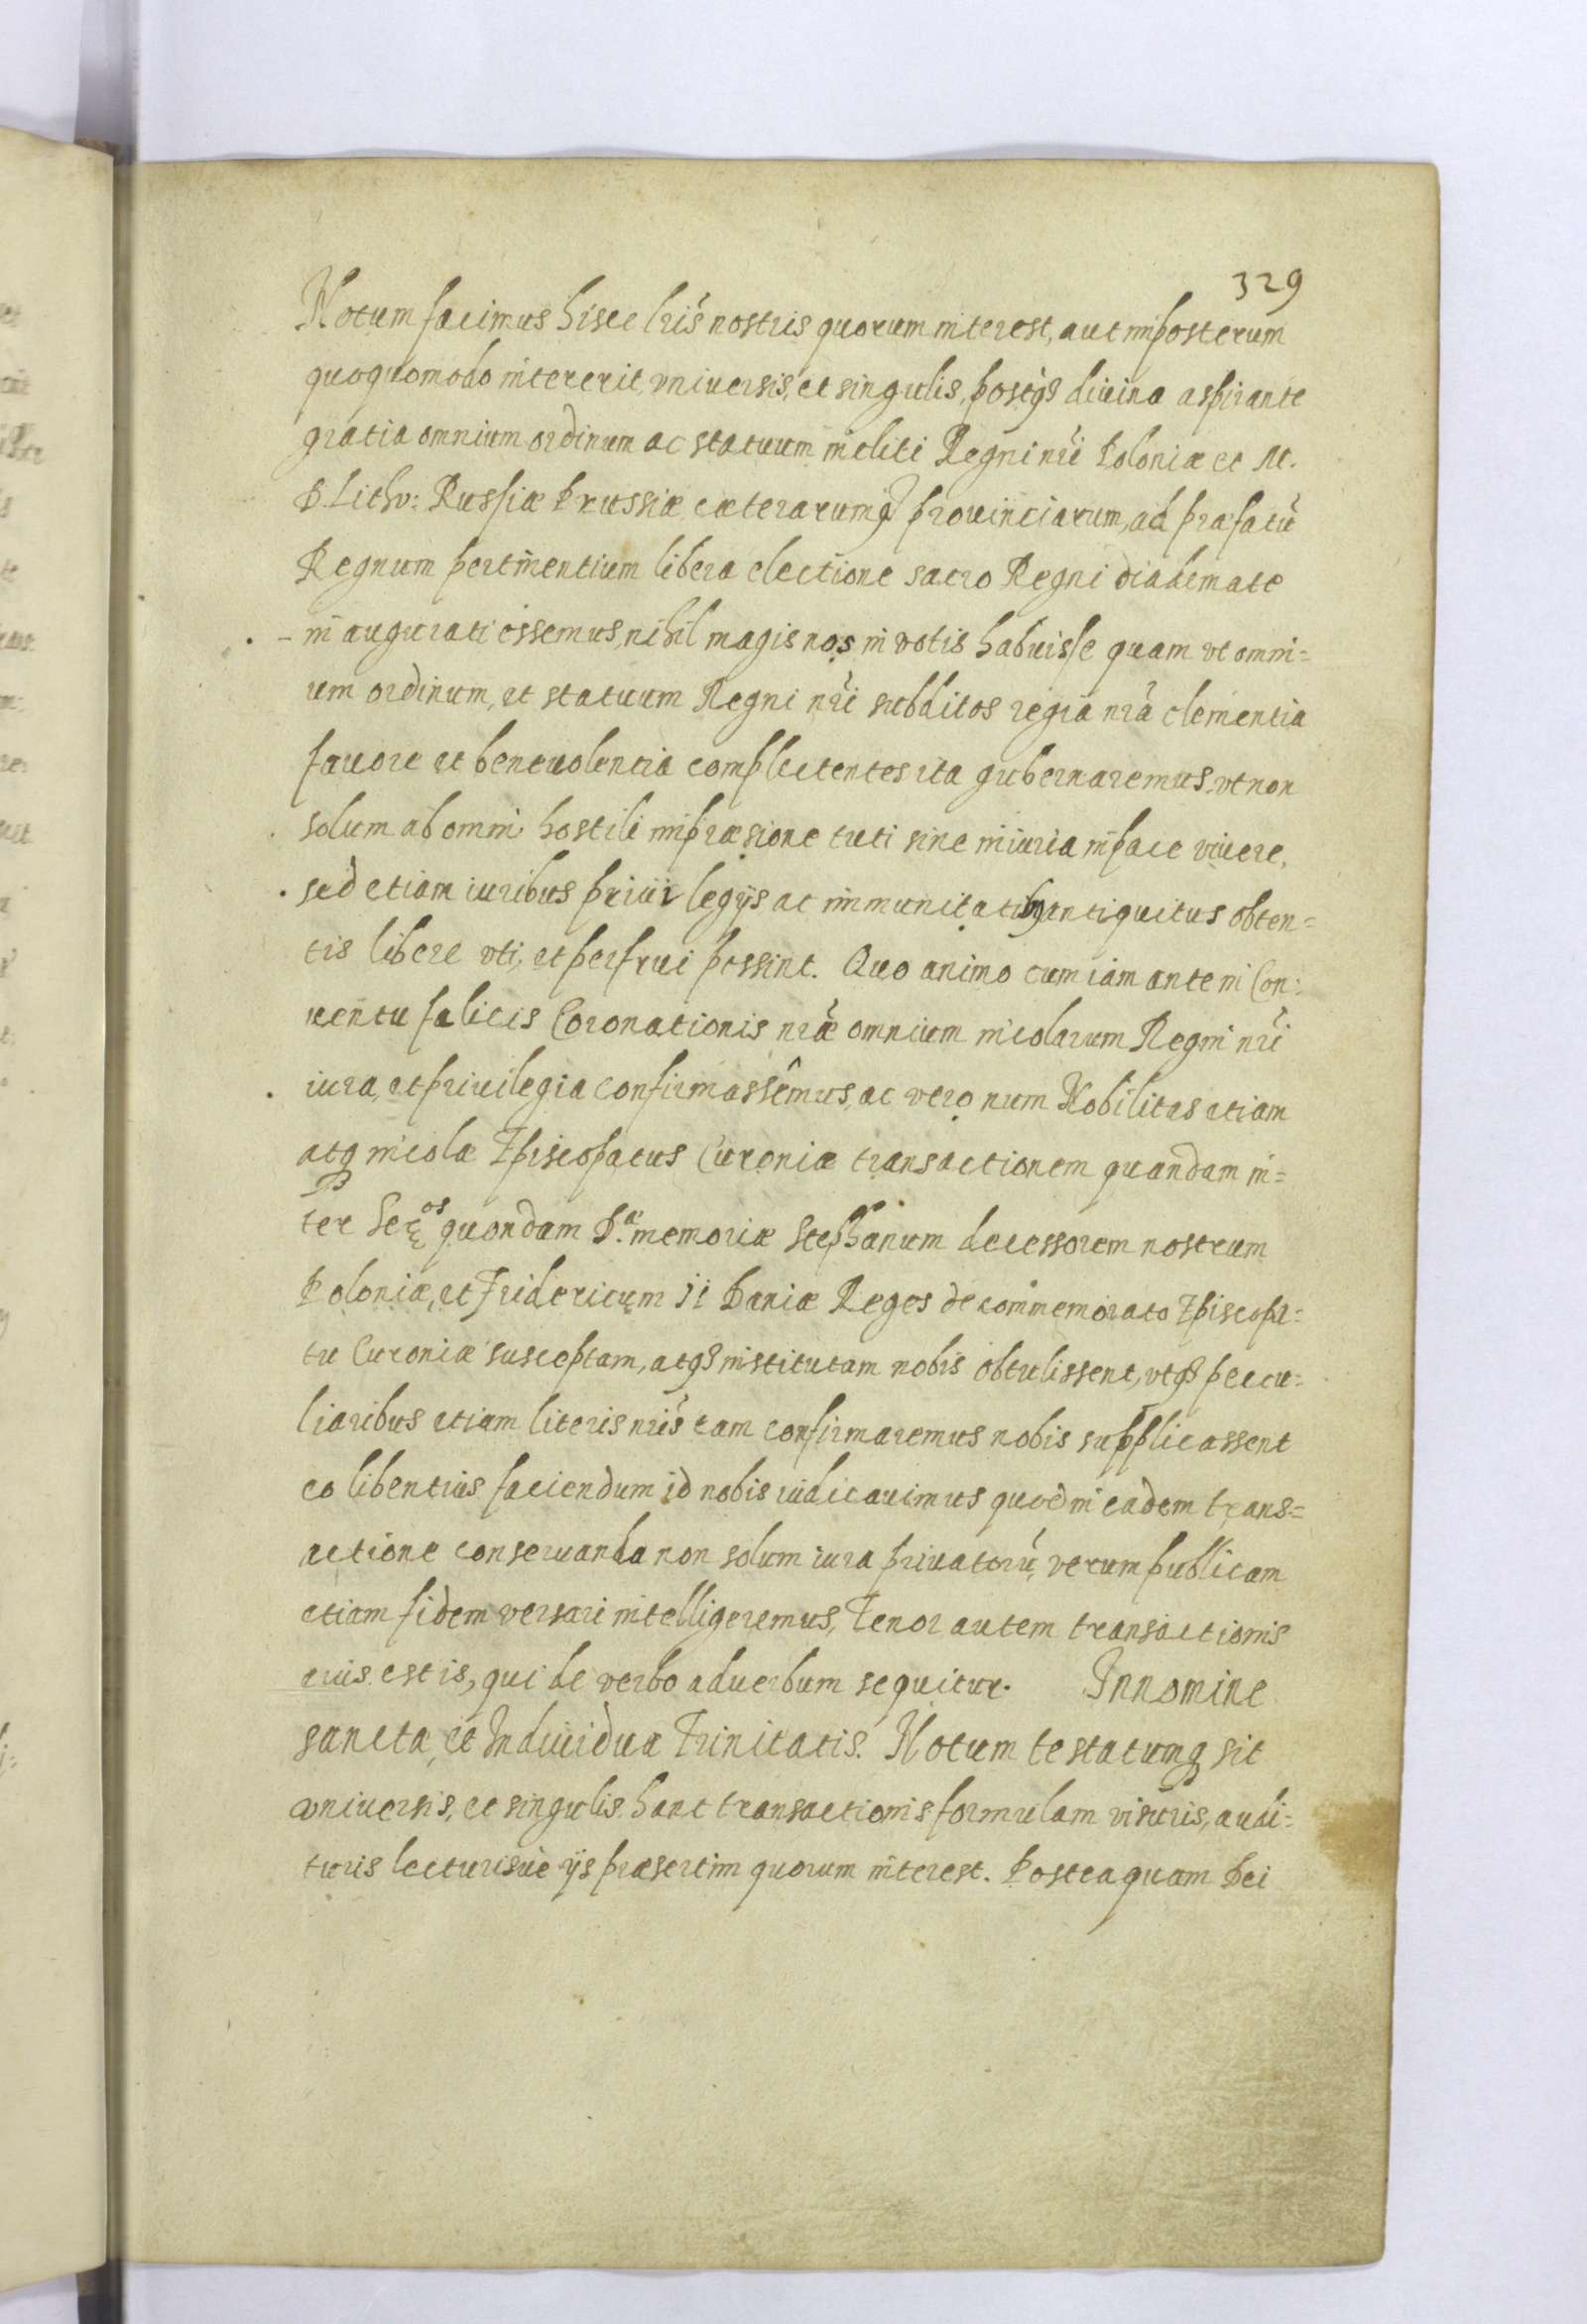 329
Notum facimus hisce lris̃ nostris quorum interest, aut inposterum
quoquomodo intererit, vniuersis, et singulis, postq̃ divina aspirante
gratia omnium ordinum ac statuum incliti Regni nri̾ Poloniæ et M.
D. Lithv: Russiæ Prussiæ cæterarumq̃ prouinciarum, ad præfatũ
Regnum pertinentium libera electione sacro Regni diademate
- inaugurati essemus, nihil magis nos in votis habuisse quam vt omni=
um ordinum, et statuum Regni nrĩ subditos regia nrã clementia
fauore et beneuolentia complectentes ita gubernaremus, vt non
solum ab omni hostili inpræsione tuti sine iniuria in pace viuere,
sed etiam iuribus priuilegijs ac immunitatibq antiquitus obten=
tis libere vti, et perfrui possint. Quo animo cum iam ante in Con:
uentu fælicis Coronationis nræ̃ omnium incolarum Regni nrĩ
iura, et priuilegia confirmassêmus, ac vero num Nobilitas etiam
atq incolæ Episcopatus Curoniæ transactionem quandam in=
ter Ser.os quondam D.æ memoriæ Stephanum decessorem nostrum
Poloniæ, et Fridericum ii Daniæ Reges de commemorato Episcopa=
tu Curoniæ susceptam, atq̃ institutam nobis obtulissent, vtq̃ peccu=
liaribus etiam literis nris̃ eam confirmaremus nobis supplicassent
eo libentius faciendum id nobis iudicauimus quod in eadem trans=
actione conseruanda non solum iura priuatorũ, verum publicam
etiam fidem versari intelligeremus, Tenor autem transactionis
eius est is, qui de verbo aduerbum sequitur. Innomine
sanctæ, et Indiuiduæ Trinitatis. Notum testatumq sit
vniuersis, et singulis hanc transactionis formulam visuris, audi=
turis lecturisue ijs præsertim quorum interest. Posteaquam Dei